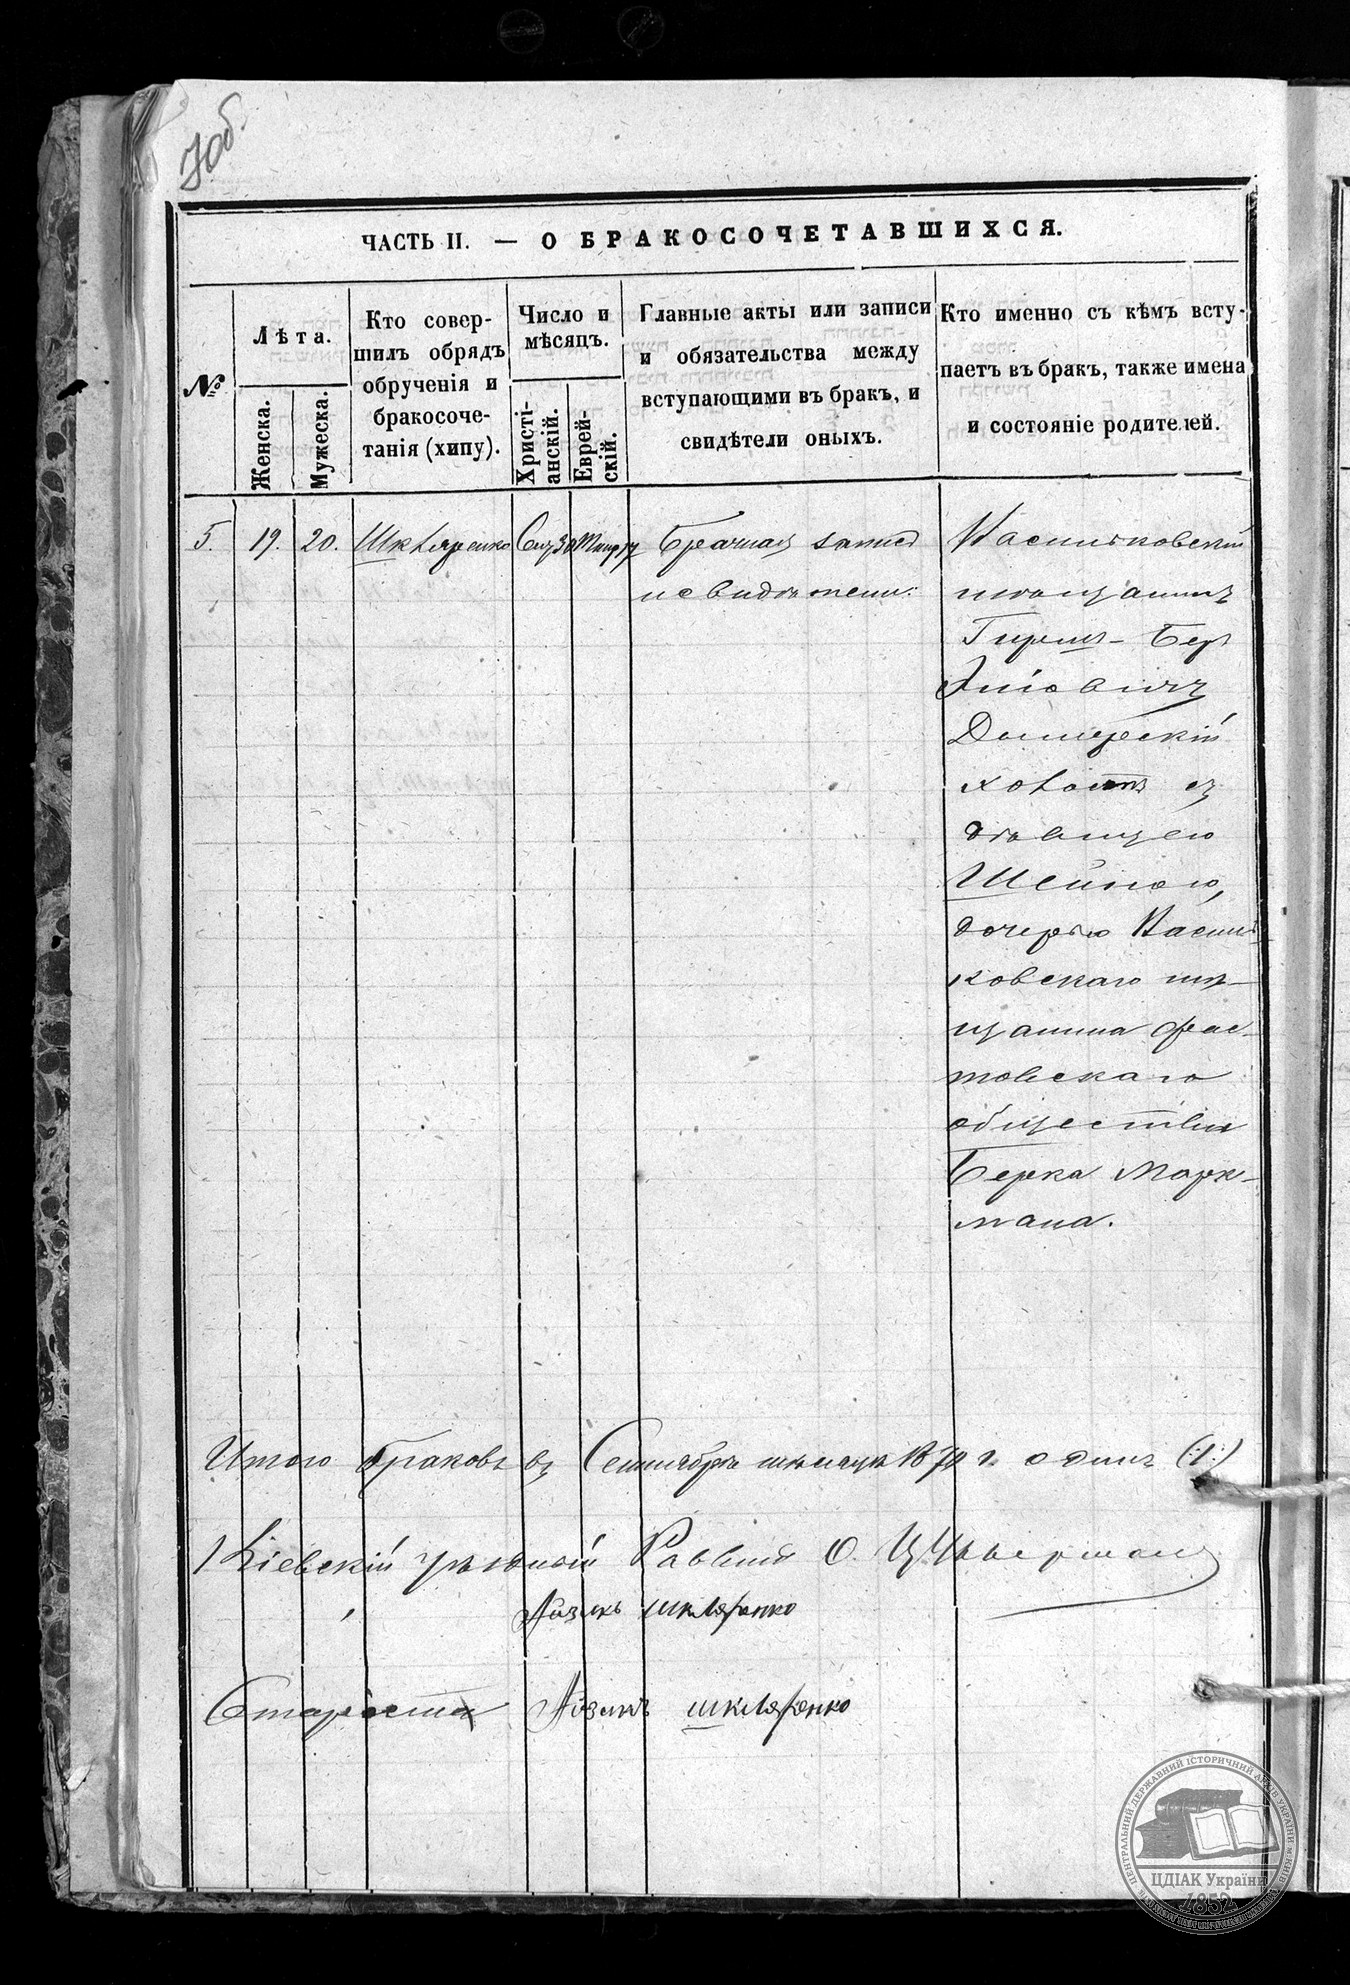 7об.
ЧАСТЬ II. — О БРАКОСОЧЕТАВШИХСЯ.
№
Лѣта.
Женска.
Мужеска.
Кто совер-
шилъ обрядъ
обрученія и
бракосоче-
танія (хипу).
Число и
мѣсяцъ.
Христі-
анскій.
Еврей-
скій.
Главные акты или записи
и обязательства между
вступающими въ бракъ, и
свидѣтели оныхъ.
Кто именно съ кѣмъ всту-
паетъ въ бракъ, также имена
и состояніе родителей.
5. 19. 20. Шкляренко Сен 30 Тишр 17 Брачная запись
и свидѣтели:
Васильковскій
мѣщанинъ
Гершъ-Беръ
Дымерскій
холостъ съ
дѣвицею
Шейною,
дочерью Василь
ковскаго мѣ-
щанина Фас-
товскаго
общества
Берка Марк-
мана.
Итого браковъ въ Сентябрѣ мѣсяцѣ 1879 г. одинъ (1.)
Кіевскій уѣздный Раввинъ О. Цукерманъ
Айзикъ Шкляренко
Староста Айзикъ Шкляренко
ЦЕНТРАЛЬНИЙ ДЕРЖАВНИЙ ІСТОРИЧНИЙ АРХІВ УКРАЇНИ м. КИЇВ
ЦДІАК України
1852